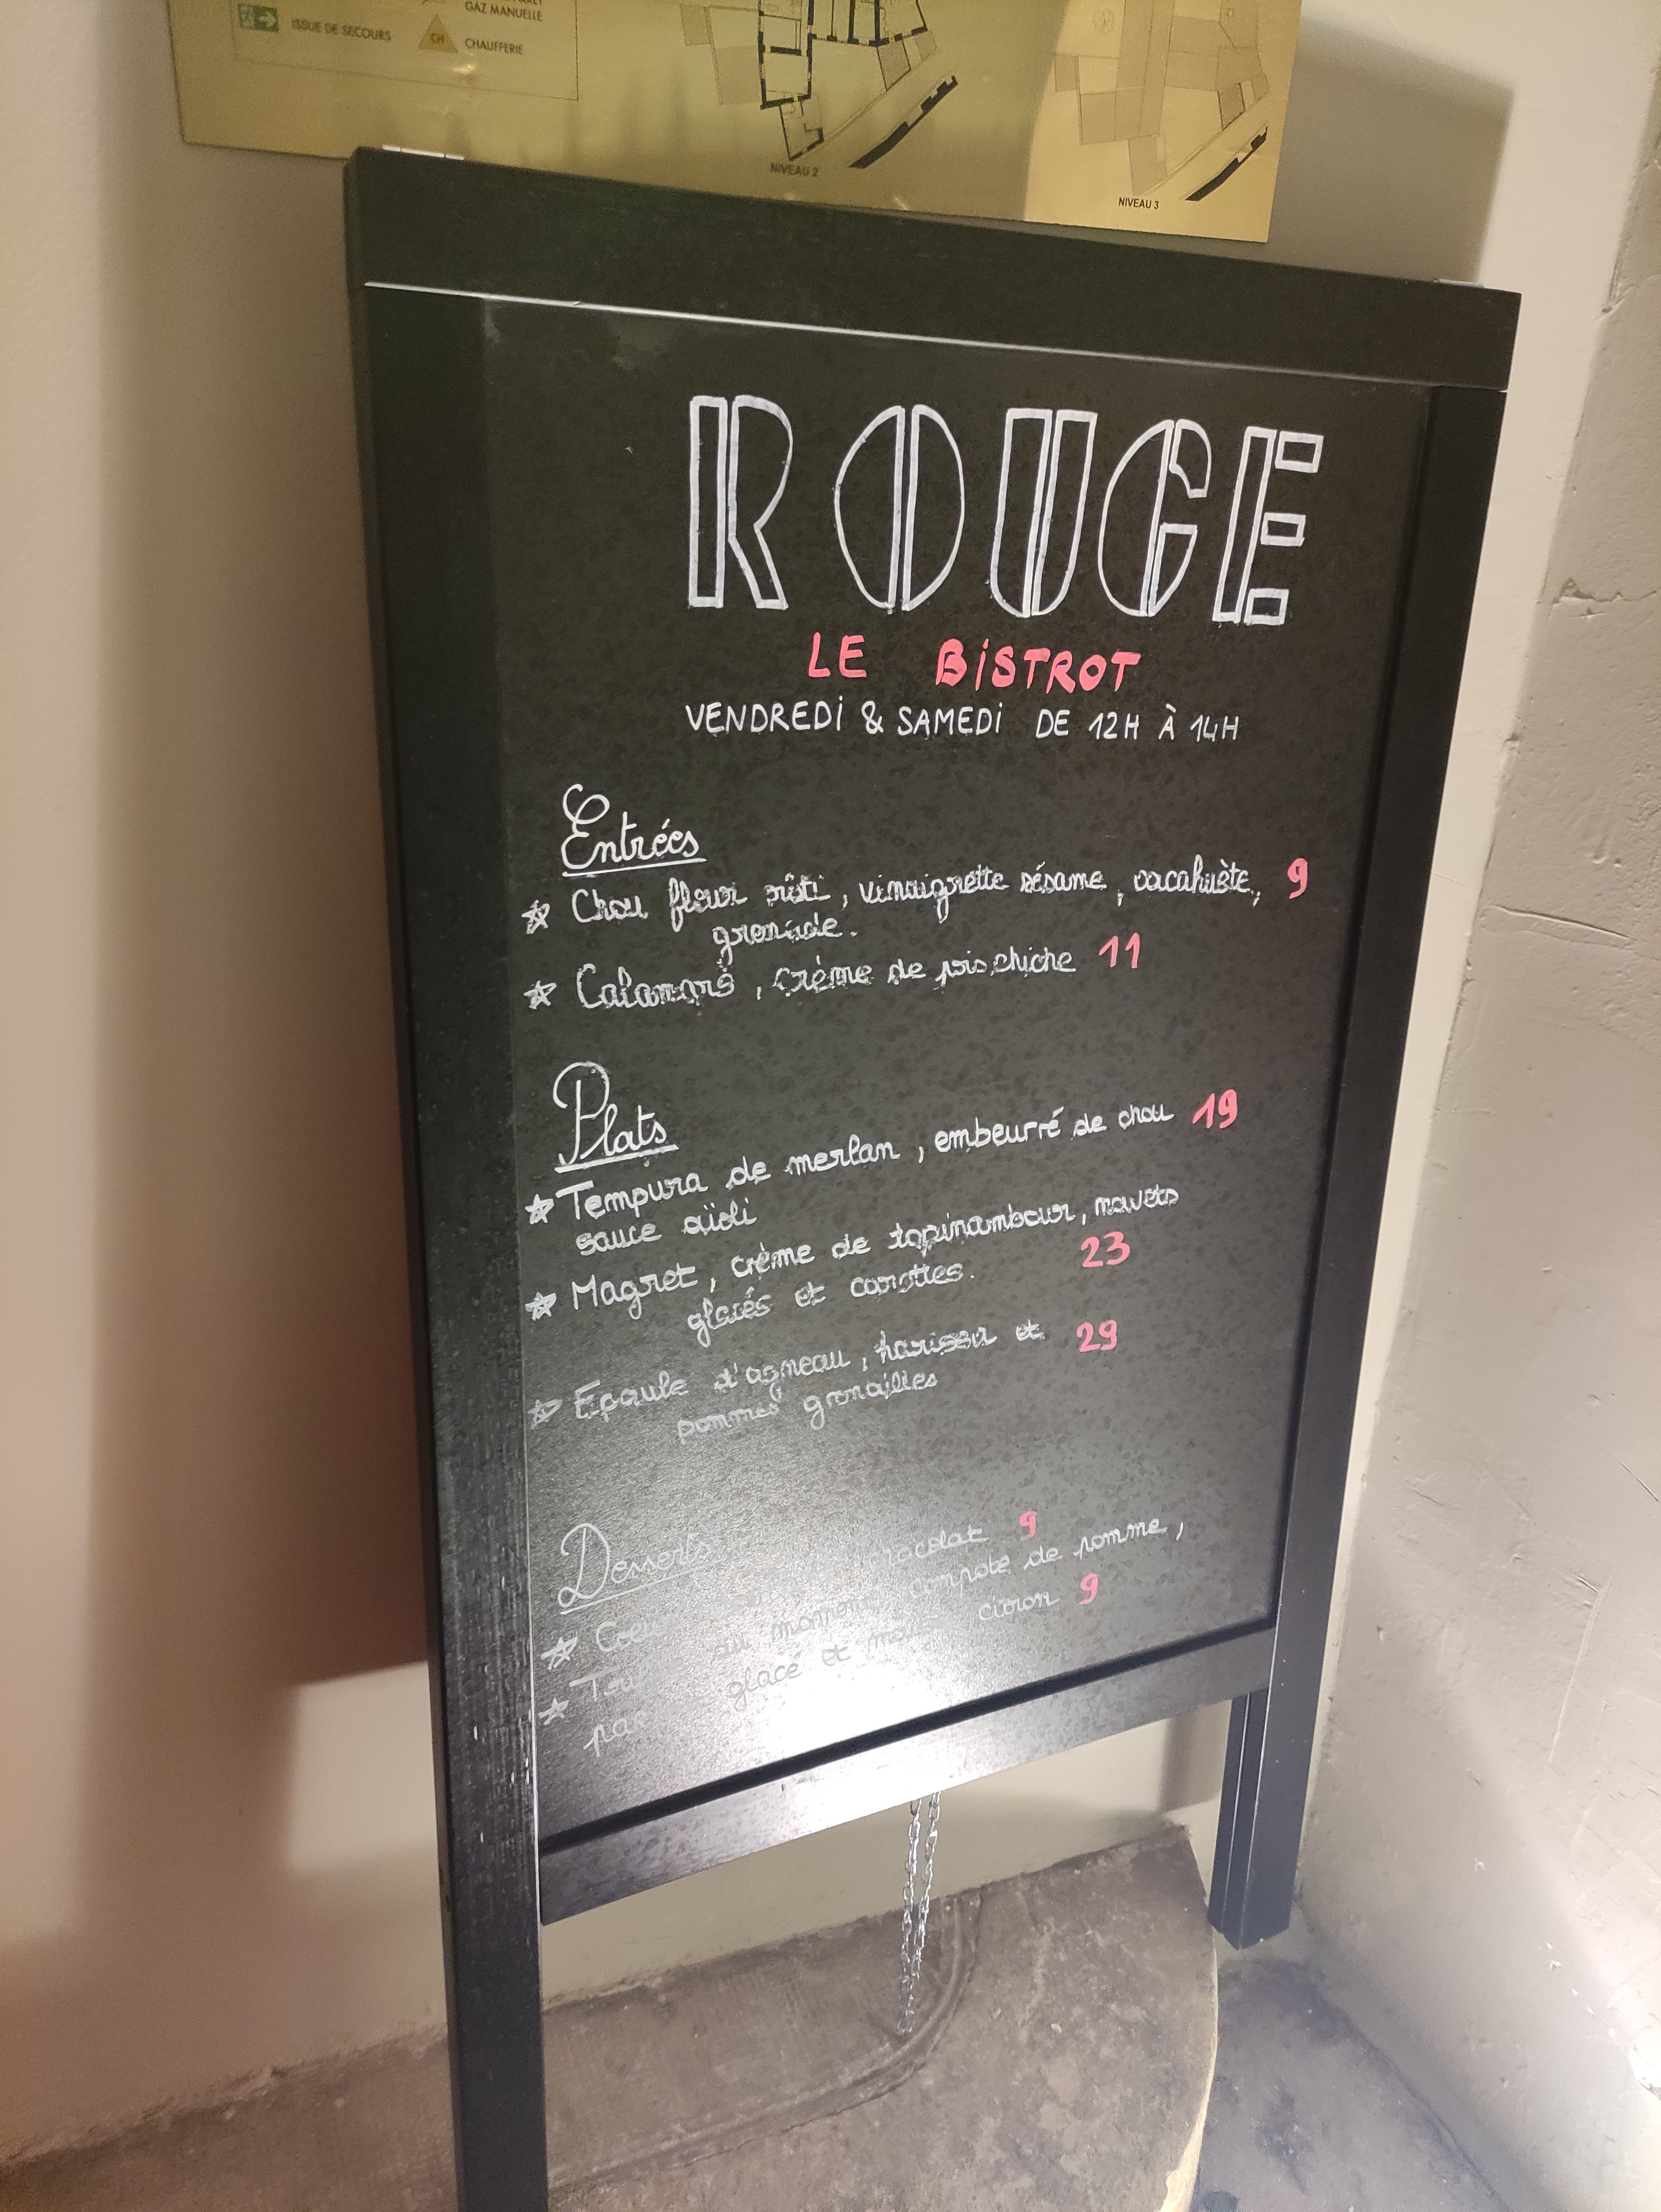 GAZ MANUELLE
ISSUE DE SECOURS
CH
CHAUFFERIE
NIVEAU 2
NIVEAU 3
ROUGE
LE BISTROT
VENDREDI & SAMEDI DE 12H À 14H
Entrées
Chou fleur rôti, vinaigrette sésame, cacahuète, 9
grenade.
Calamars, crème de pois chiche 11
Plats
Tempura de merlan, embeurré de chou 19
sauce aïoli
Magret, crème de topinambour, navets
glacés et carottes. 23
Epaule d'agneau, harissa et 29
pommes grenailles
Desserts
chocolat 9
au moment compote de pomme,
glacé et citron 9